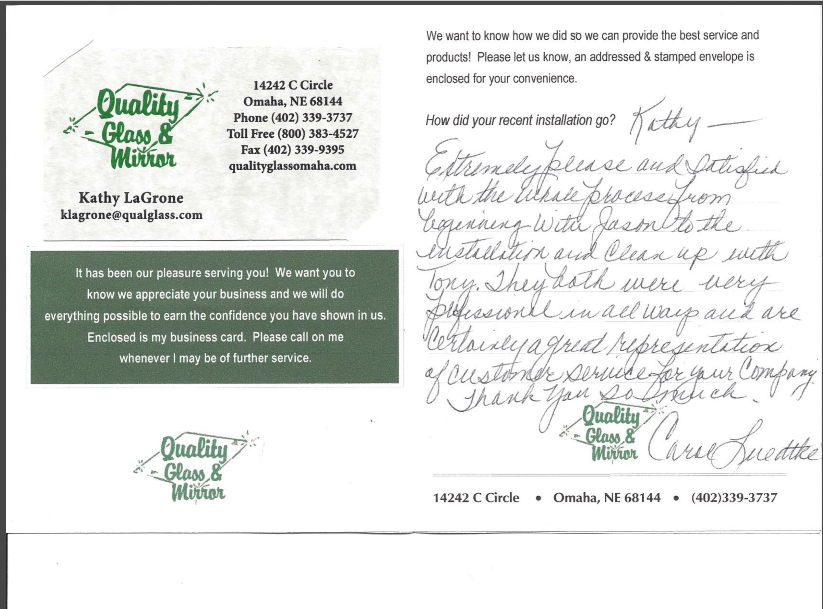 Quality
Glass &
Mirror
14242 C Circle
Omaha, NE 68144
Phone (402) 339-3737
Toll Free (800) 383-4527
Fax (402) 339-9395
qualityglassomaha.com
Kathy LaGrone
klagrone@qualglass.com
It has been our pleasure serving you! We want you to
know we appreciate your business and we will do
everything possible to earn the confidence you have shown in us.
Enclosed is my business card. Please call on me
whenever I may be of further service.
Quality
Glass &
Mirror
We want to know how we did so we can provide the best service and
products! Please let us know, an addressed & stamped envelope is
enclosed for your convenience.
How did your recent installation go? Kathy —
Extremely please and satisfied
with the whole process from
beginning with Jason to the
installation and clean up with
Tony. They both were very
professional in all ways and are
certainly a great representation
of customer service for your company.
Thank you so much.
Quality
Glass &
Mirror
Carol Luedtke
14242 C Circle • Omaha, NE 68144 • (402)339-3737